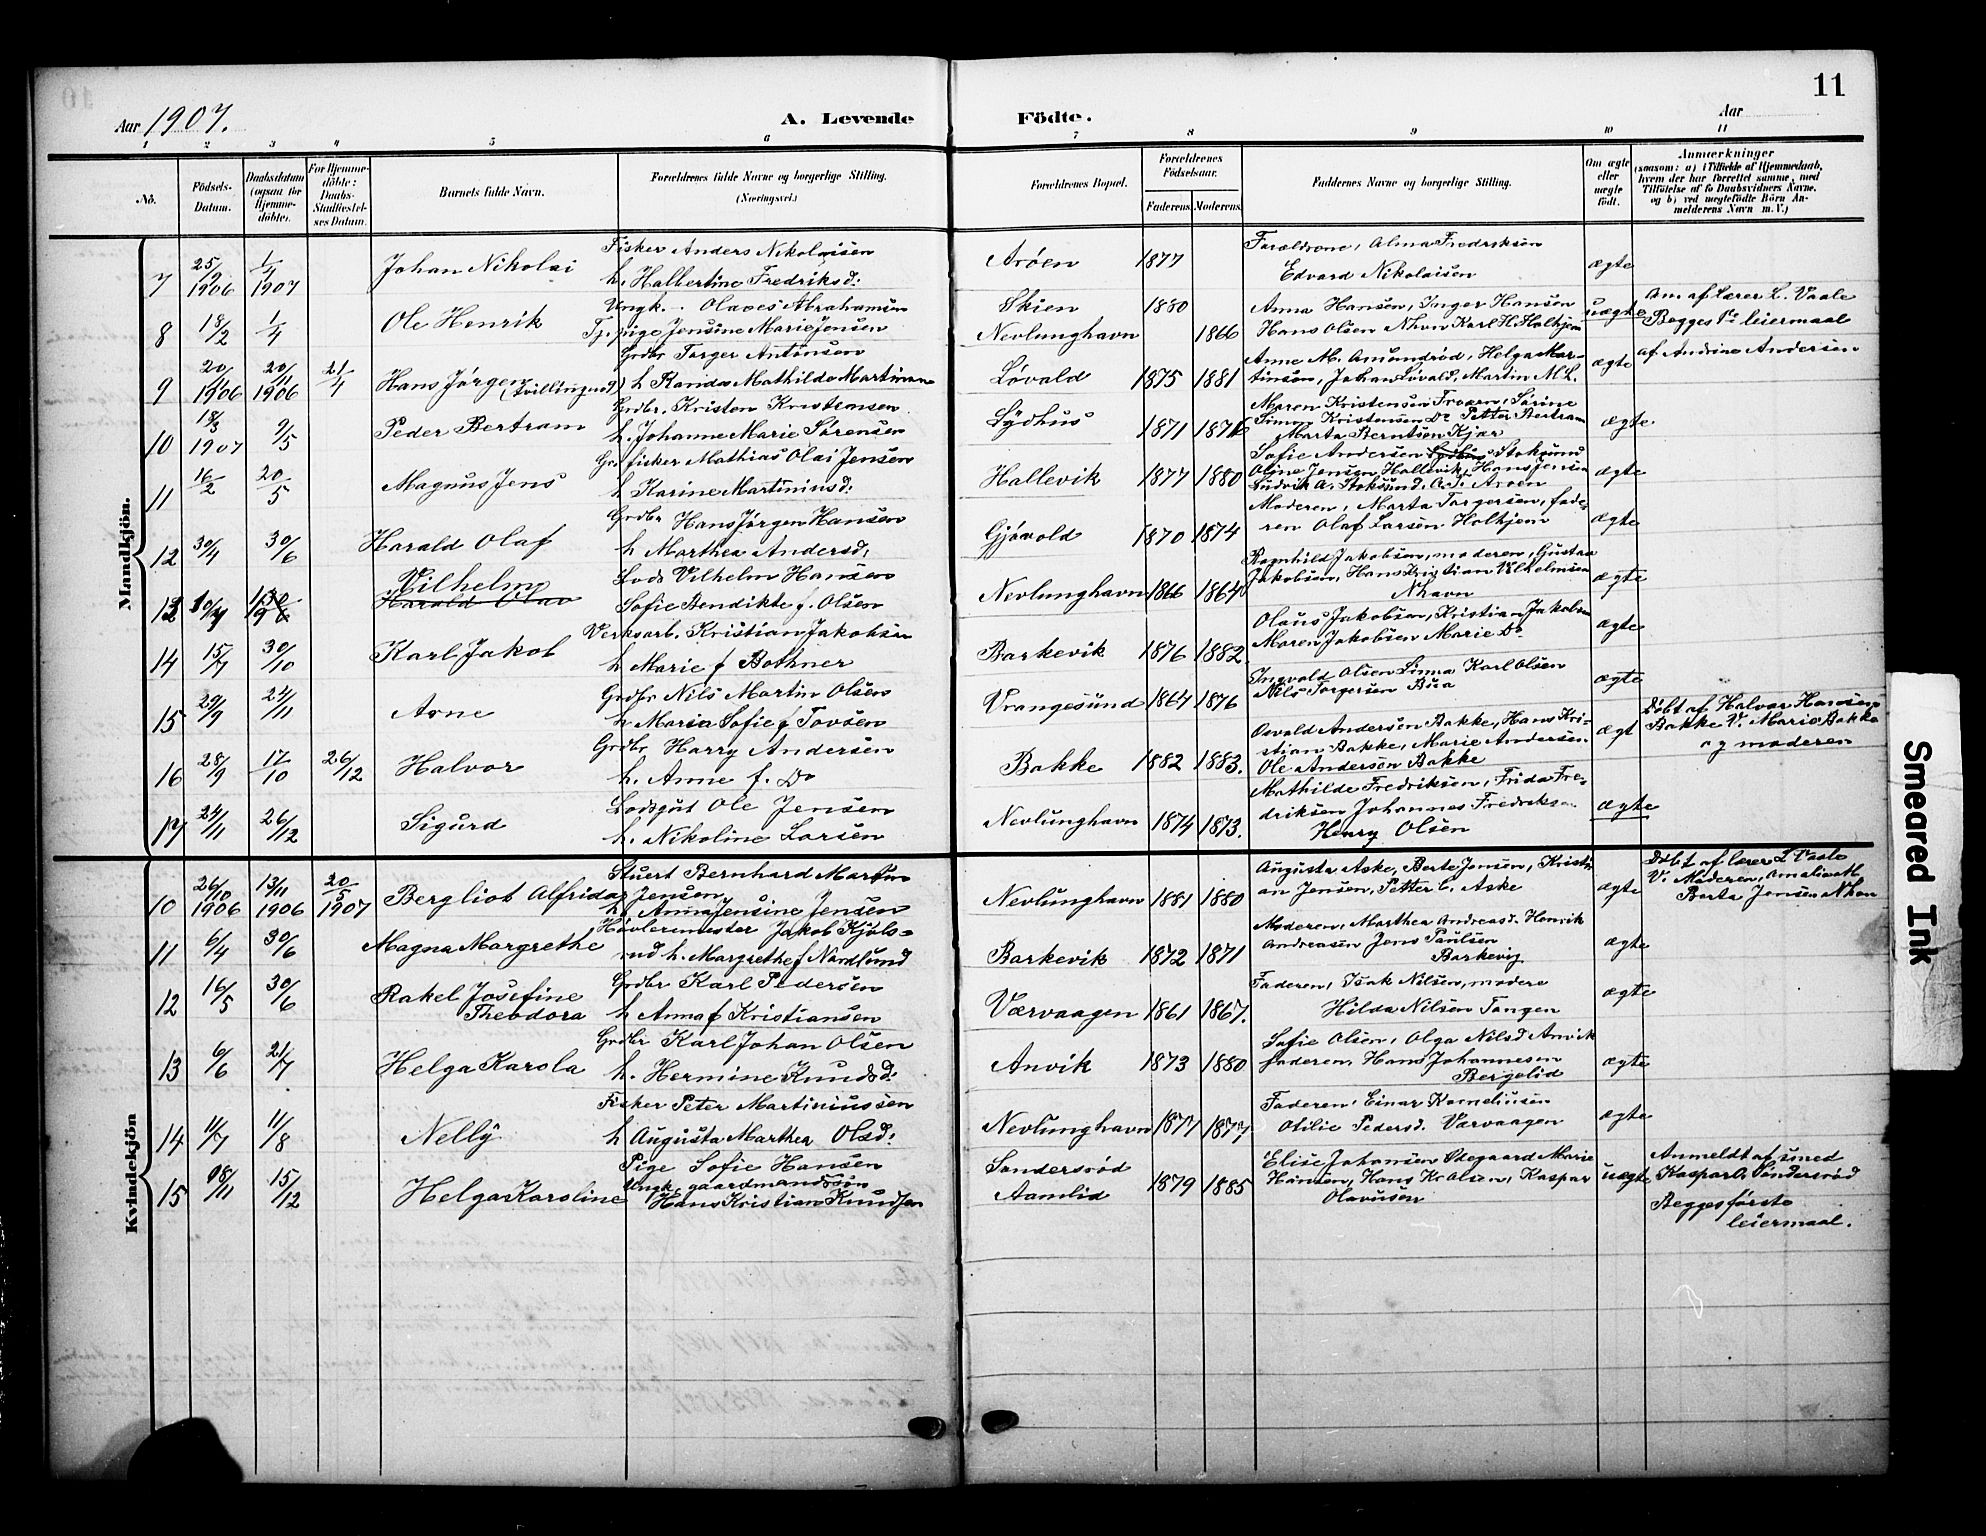 11
Aar 1907.
A. Levende Födte.
Aar
1 2 3 4 5 6 7 8 9 10 11
No.
Födsels-Datum.
Daabsdatum (ogsaa for Hjemme-döbte).
For Hjemme-döbte: Daabs-Stadfæstel-ses Datum.
Barnets fulde Navn.
Forældrenes fulde Navne og borgerlige Stilling.
(Næringsvei.)
Forældrenes Bopæl.
Forældrenes Födselsaar.
Faderens. Moderens.
Faddernes Navne og borgerlige Stilling.
Om ægte eller uægte födt.
Anmærkninger
(saasom: a) i Tilfælde af Hjemmedaab,
hvem der har forrettet samme, med
Tilföielse af to Daabsvidners Navne,
og b) ved uægtefödte Börn An-
melderens Navn m.V.)
Mandkjön.
7 25/9 1906 1/4 1907 Johan Nikolai
Fisker Anders Nikolaisen
h. Halbertine Fredriksd:
Arøen 1877
Forældrene, Alma Fredriksen
Edvard Nikolaisen
ægte
8 18/2 1/4 Ole Henrik
Ungk. Olaves Abrahamsen
Tj. pige Jensine Marie Jensen
Skien 1880
Nevlunghavn 1866
Anna Hansen, Inger Hansen
Hans Olsen Nhavn Karl H. Holtjem
uægte
Anm af lærer L. Vaale
Begges 1ste leiermaal
9 20/1906 20/11 1906 21/4 Hans Jørgen (tvillingsød)
Grdbr Torger Antonsen
h Randa Mathilde Martinsen
Løvald 1875 1881
Anne M. Amundrød, Helga Mar-
tinsen, Johan Løvald, Martin M. L.
ægte
af Andrine Andersen
10 18/3 1907 9/5 Peder Bertram
Grdbr. Kristen Kristensen
h. Johanne Marie Sørensen
Lydhus 1871 1876
Maren Kristensen Froen, Sørine
Simonsen, Kristensen Do Petter Bertram
Marta Berntsen Kjær
ægte
11 16/2 20/5 Magnus Jens
Gr. fisker Mathias Olai Jensen
h Karine Martiniusd:
Hallevik 1877 1880
Sofie Andersen Stoksund
Oline Jensen Hallevik, Hans Jensen
Ludvik A. Stoksund. A. J. Arøen
ægte
12 30/4 30/6 Harald Olaf
Grdbr Hans Jørgen Hansen
h Marthea Andersd,
Gjøvold 1870 1874
Moderen, Marta Torgersen, fade-
ren Olaf Larsen Holtjem
ægte
13 10/7 1/9 Vilhelm
Harald Olav
Lods Vilhelm Hansen
Sofie Bendikte f. Olsen
Nevlunghavn 1866 1864
Ragnhild Jakobsen, moderen, Gustav
Jakobsen, Hans Kristian Vilhelmsen
Nhavn
ægte
14 15/7 30/10 Karl Jakob
Verksarb. Kristian Jakobsen
h Marie f Bothner
Barkevik 1876 1882.
Olaus Jakobsen, Kristian Jakobsen
Maren Jakobsen Marie Do
ægte
15 29/9 24/11 Arne
Grdbr Nils Martin Olsen
h Maria Sofie f Tovsen
Vrangesund 1864 1876
Ingvald Olsen Linna Karl Olsen
Nils Torgersen Bua
ægte
16 28/9 17/10 26/12 Halvor
Grdbr Harry Andersen
h. Anne f. Do
Bakke 1882 1883.
Osvald Andersen Bakke, Hans Kri-
stian Bakke, Marie Andersen
Ole Andersen Bakke
ægt
Døbt af Halvor Hansen
Bakke V. Marie Bakke
og moderen
17 24/11 26/12 Sigurd
Lodsgut Ole Jensen
h. Nikoline Larsen
Nevlunghavn 1874 1873.
Mathilde Fredriksen, Frida Fre-
driksen Johannes Fredriksen
Henry Olsen
ægte
Kvindekjön
10 26/10 1906 13/11 1906 20/5 1907 Bergliot Alfrida
Stuert Bernhard Martin
Jensen
h. Anna Jensine Jensen
Nevlunghavn 1881 1880
Augusta Aske, Berte Jensen, Kristi-
an Jensen, Petter C. Aske
ægte
Døbt af lærer L Vaale
V. Moderen, Amalie
Berta Jensen Nhavn
11 6/4 30/6 Magna Margrethe
Høvlermester Jakob Kjøls-
rud h. Margrethe f Nordlund
Barkevik 1872 1871
Moderen, Marthea Andreasd. Henrik
Andreasen Jens Paulsen
Barkevig
ægte
12 16/5 30/6 Rakel Josefine
Theodora
Grdbr Karl Pedersen
h Anna f Kristiansen
Værvaagen 1861 1867.
Faderen, Isak Nilsen, modere
Hilda Nilsen Tangen
ægte
13 6/6 21/7 Helga Karola
Grdbr Karl Johan Olsen
h. Hermine Knudsd:
Anvik 1873 1880
Sofie Olsen, Olga Nilsd Anvik
faderen, Hans Johannesen
Bergelid
ægte
14 11/7 11/8 Nelly
Fisker Peter Martiniussen
h Augusta Marthea Olsd:
Nevlunghavn 1877 1877
Faderen, Einar Korneliusen
Otilie Pedersd. Værvaagen
ægte
15 08/11 15/12 Helga Karoline
Pige Sofie Hansen
Ungk. gaardmandssøn
Hans Kristian Knudsen
Sondersrød
Aamlid 1879 1885
Elise Johansen Ødegaard Marie
Hansen, Hans Kr Olsen, Kaspar
Olavusen
uægte
Anmeldt af smed
Kaspar O. Søndersrød
Begges første
leiermaal.
Smeared Ink